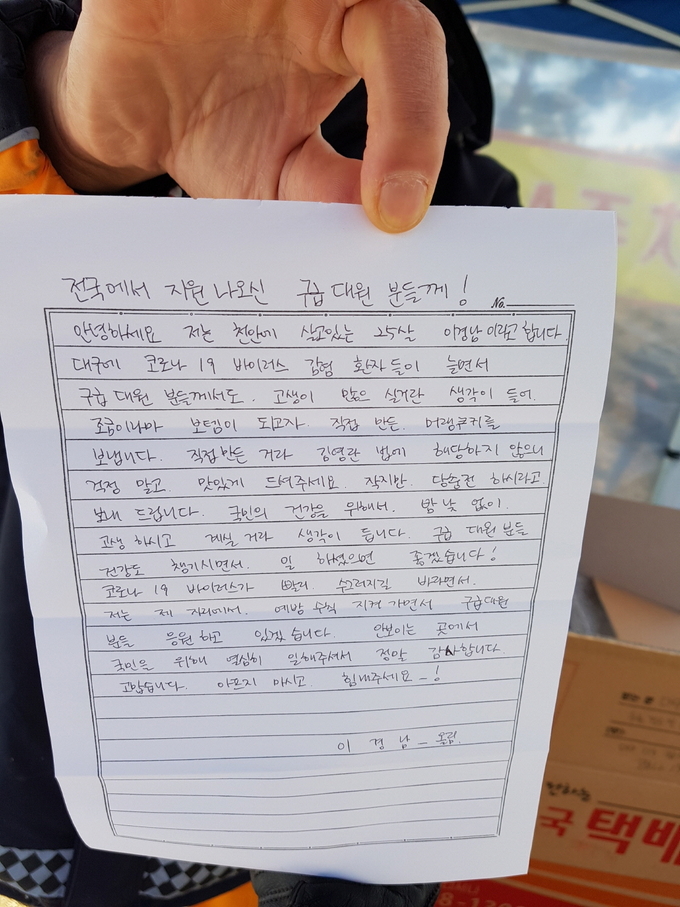 전국에서 지원 나오신 구급 대원 분들께!
No.
안녕하세요 저는 천안에 살고있는 25살 이경남 이라고 합니다.
대구에 코로나 19 바이러스 감염 환자들이 늘면서
구급 대원 분들께서도. 고생이 많으 실거란 생각이 들어.
조금이나마 보템이 되고자. 직접 만든. 머랭쿠키를
보냅니다. 직접만든 거라 김영란 법에 해당하지 않으니
걱정 말고. 맛있게 드셔주세요. 작지만. 당충전 하시라고
보내 드립니다. 국민의 건강을 위해서. 밤 낮 없이.
고생 하시고 계실 거라 생각이 듭니다. 구급 대원 분들
건강도 챙기시면서. 일 하셨으면 좋겠습니다!
코로나 19 바이러스가 빨리. 수그러지길 바라면서.
저는 제 자리에서. 예방 수칙 지켜 가면서 구급대원
분들 응원하고 있겠습니다. 안보이는 곳에서
국민을 위해 열심히 일해주셔서 정말 감사합니다.
고맙습니다. 아프지 마시고. 힘내주세요-!
이 경 남 - 올림.
국 택배